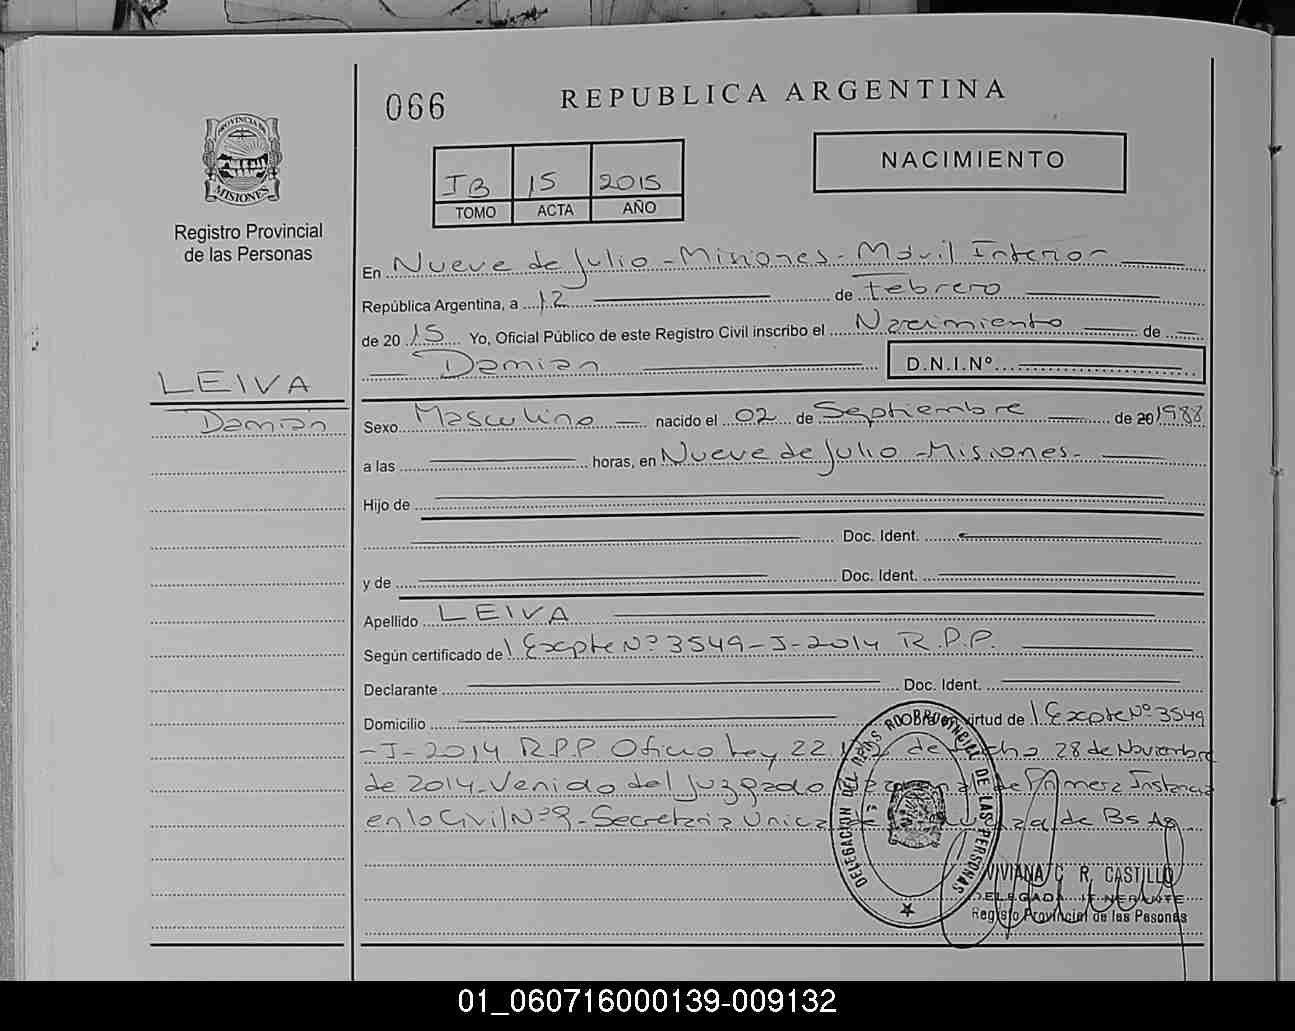 066
REPUBLICA ARGENTINA
NACIMIENTO
PROVINCIA DE
MISIONES
Registro Provincial
de las Personas
IB 15 2015
TOMO ACTA AÑO
En Nueve de Julio - Misiones - Móvil Interior
República Argentina, a 12 de Febrero
de 2015 Yo, Oficial Público de este Registro Civil inscribo el Nacimiento de
Damian D.N.I.Nº
LEIVA
Damian
Sexo Masculino nacido el 02 de Septiembre de 20 1988
a las horas, en Nueve de Julio - Misiones -
Hijo de
Doc. Ident.
y de Doc. Ident.
Apellido LEIVA
Según certificado del Expte Nº 3549-J-2014 R.P.P.
Declarante Doc. Ident.
Domicilio Obra virtud del Expte Nº 3549
-J-2014 R.P.P Oficio Ley 22 de 28 de Noviembre
de 2014 - Venido del Juzgado de Primera Instancia
en lo Civil Nº 9 - Secretaria Unica de Bs As
DELEGACION DEL REGISTRO PROVINCIAL DE LAS PERSONAS
VIVIANA C R. CASTILLO
DELEGADA ITINERANTE
Registro Provincial de las Pesonas
01_060716000139-009132